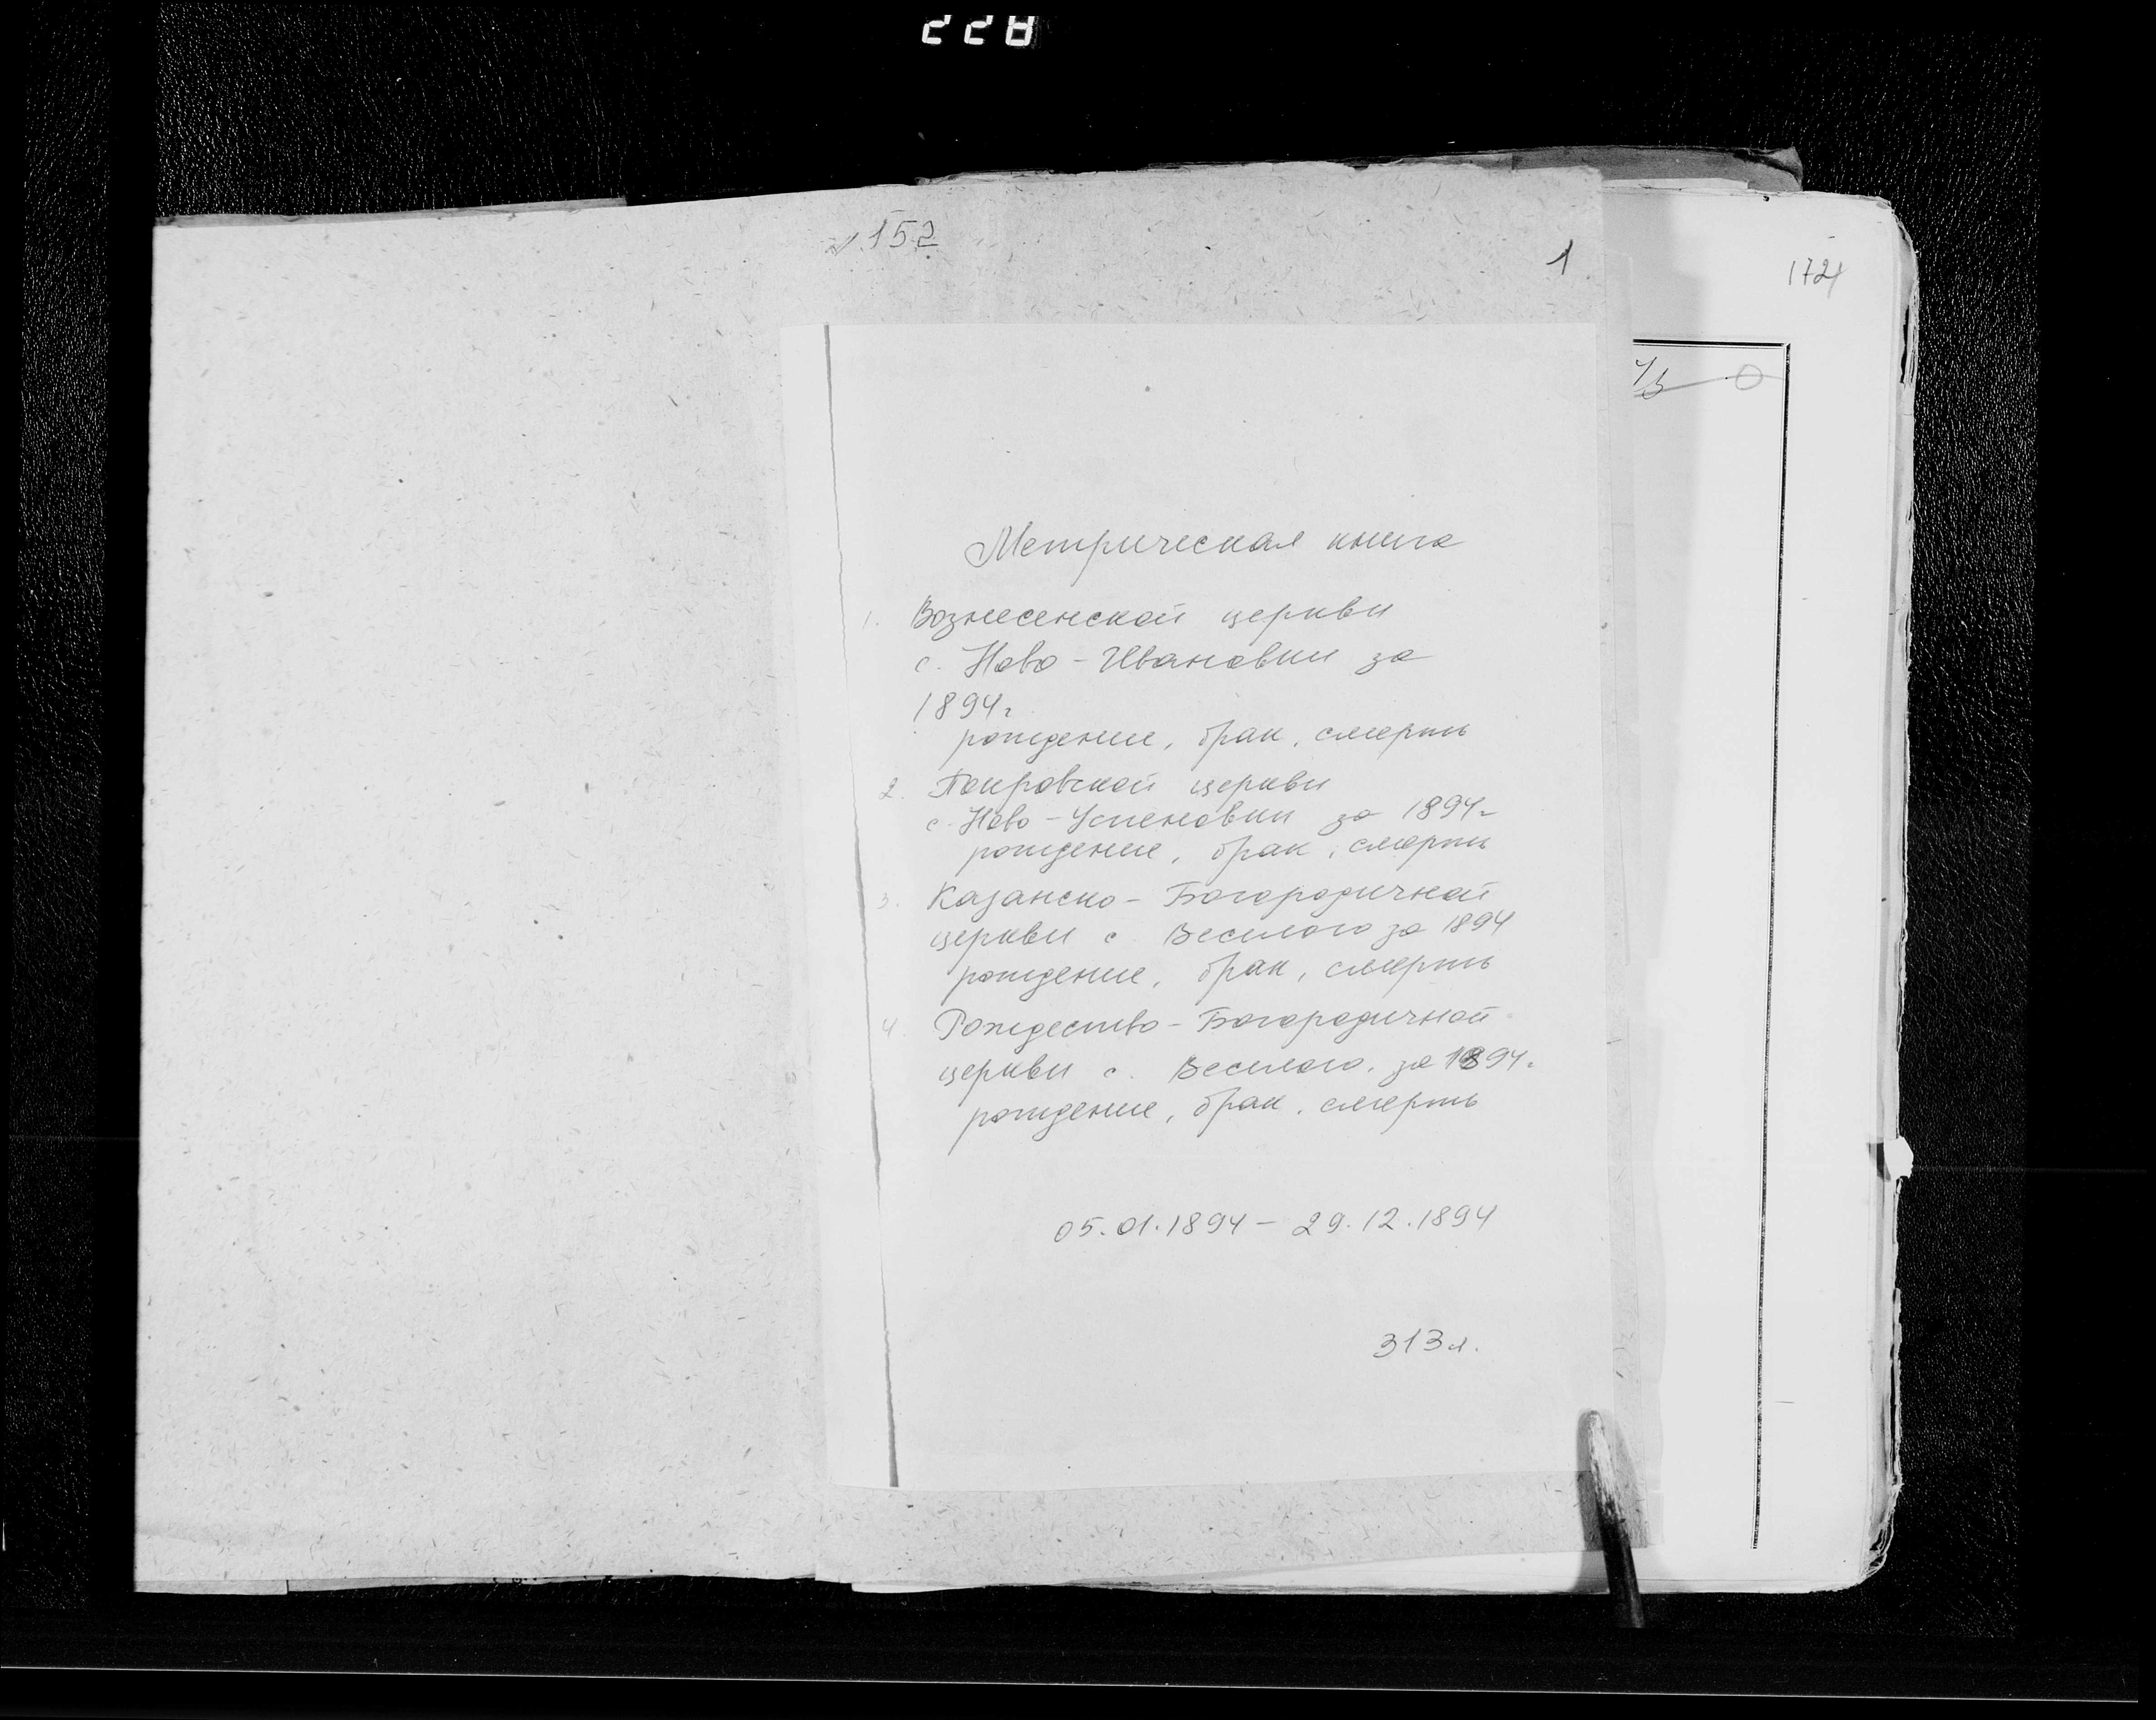 228
152
1
172
Метрическая книга
1. Вознесенской церкви
с. Ново-Ивановки за
1894г
рождение, брак, смерть
2. Покровской церкви
с. Ново-Успеновки за 1894г
рождение, брак, смерть
3. Казанско-Богородичной
церкви с. Веселого за 1894
рождение, брак, смерть
4. Рождество-Богородичной
церкви с. Веселого. за 1894г.
рождение, брак, смерть
05.01.1894 - 29.12.1894
313л.